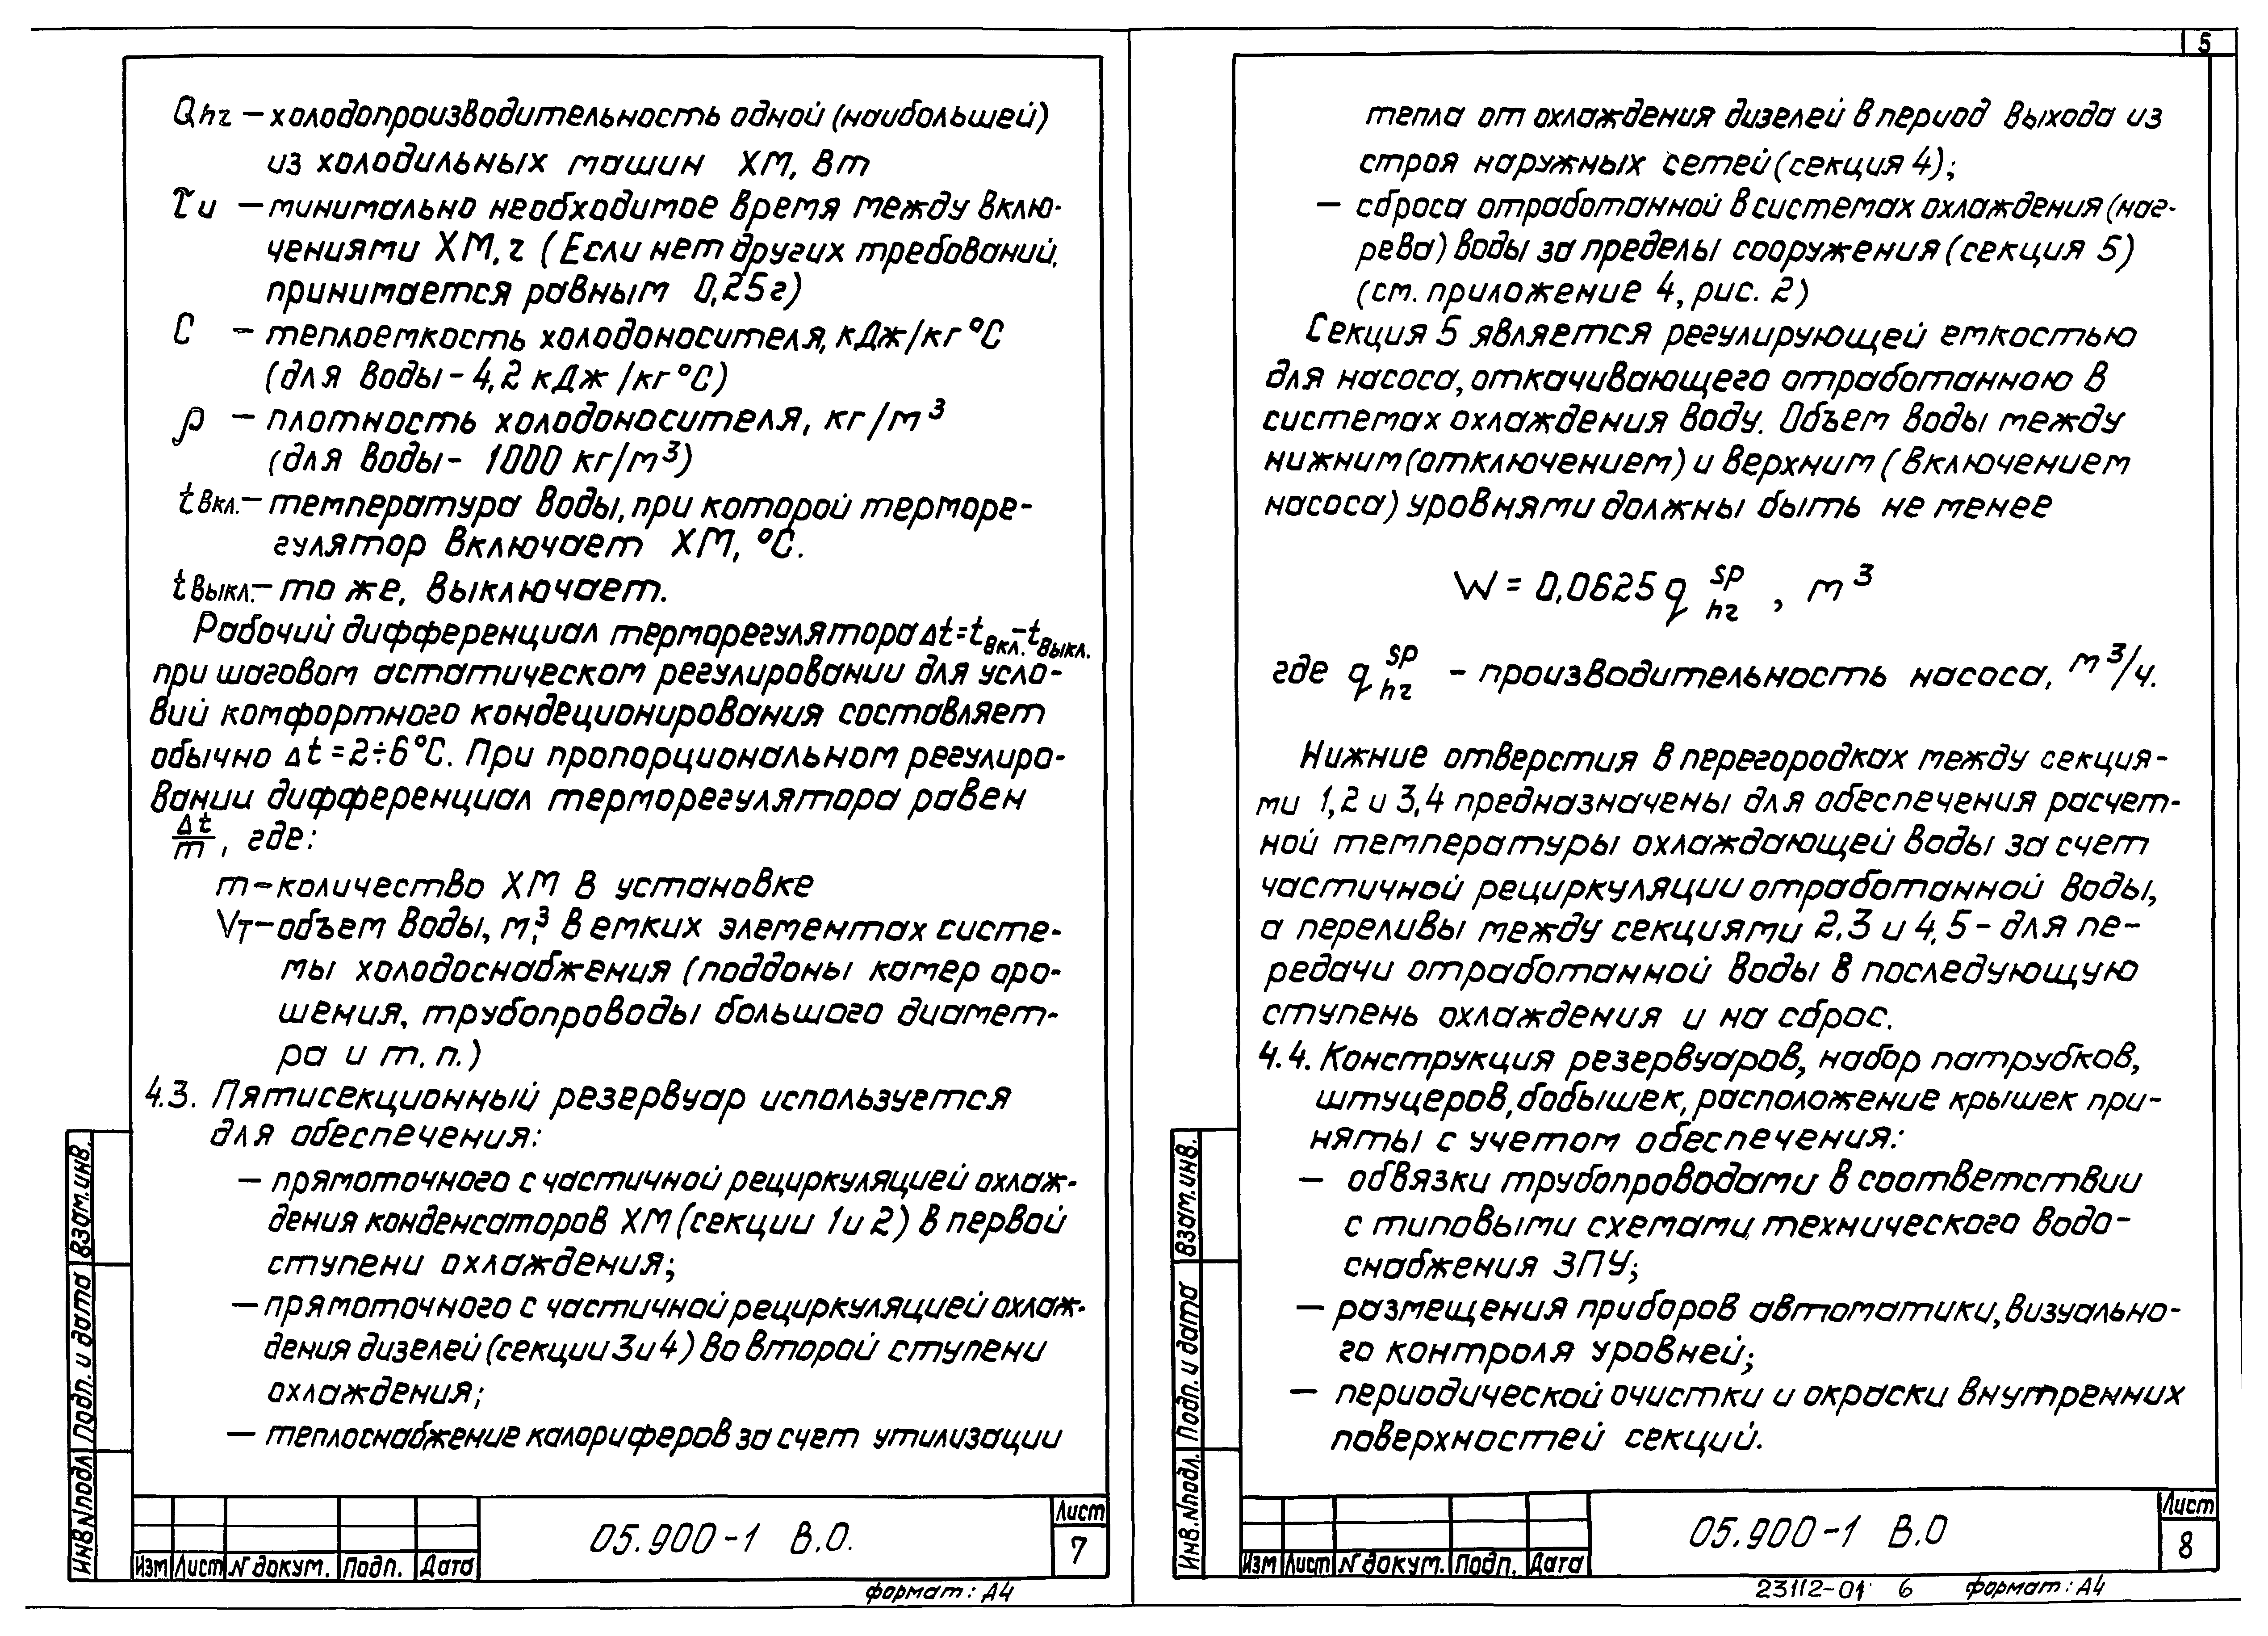 5
Qhz – холодопроизводительность одной (наибольшей)
из холодильных машин ХМ, Вт
τи – минимально необходимое время между вклю-
чениями ХМ, г (Если нет других требований,
принимается равным 0,25г)
С – теплоемкость холодоносителя, кДж/кг °С
(для воды - 4,2 кДж/кг °С)
ρ – плотность холодоносителя, кг/м³
(для воды - 1000 кг/м³)
tвкл. – температура воды, при которой терморе-
гулятор включает ХМ, °С.
tвыкл. – то же, выключает.
Рабочий дифференциал терморегулятора Δt=tвкл.-tвыкл.
при шаговом астатическом регулировании для усло-
вий комфортного кондеционирования составляет
обычно Δt = 2÷6°С. При пропорциональном регулиро-
вании дифференциал терморегулятора равен
Δt/m, где:
m – количество ХМ в установке
Vт – объем воды, м³, в емких элементах систе-
мы холодоснабжения (поддоны камер оро-
шения, трубопроводы большого диамет-
ра и т. п.)
4.3. Пятисекционный резервуар используется
для обеспечения:
– прямоточного с частичной рециркуляцией охлаж-
дения конденсаторов ХМ (секции 1 и 2) в первой
ступени охлаждения;
– прямоточного с частичной рециркуляцией охлаж-
дения дизелей (секции 3 и 4) во второй ступени
охлаждения;
– теплоснабжение калориферов за счет утилизации
Взам. инв.
Подп. и дата
Инв N подл
Изм Лист N докум. Подп. Дата
05.900-1 В.О.
Лист
7
формат: А4
тепла от охлаждения дизелей в период выхода из
строя наружных сетей (секция 4);
– сброса отработанной в системах охлаждения (наг-
рева) воды за пределы сооружения (секция 5)
(см. приложение 4, рис. 2)
Секция 5 является регулирующей емкостью
для насоса, откачивающего отработанною в
системах охлаждения воду. Объем воды между
нижним (отключением) и верхним (включением
насоса) уровнями должны быть не менее
W = 0,0625 q sp hz , м³
где q sp hz - производительность насоса, м³/ч.
Нижние отверстия в перегородках между секция-
ми 1,2 и 3,4 предназначены для обеспечения расчет-
ной температуры охлаждающей воды за счет
частичной рециркуляции отработанной воды,
а переливы между секциями 2,3 и 4,5 - для пе-
редачи отработанной воды в последующую
ступень охлаждения и на сброс.
4.4. Конструкция резервуаров, набор патрубков,
штуцеров, бобышек, расположение крышек при-
няты с учетом обеспечения:
– обвязки трубопроводами в соответствии
с типовыми схемами технического водо-
снабжения ЗПУ;
– размещения приборов автоматики, визуально-
го контроля уровней;
– периодической очистки и окраски внутренних
поверхностей секций.
Взам. инв.
Подп. и дата
Инв. N подл.
Изм Лист N докум. Подп. Дата
05.900-1 В.О
Лист
8
23112-01 6 формат: А4